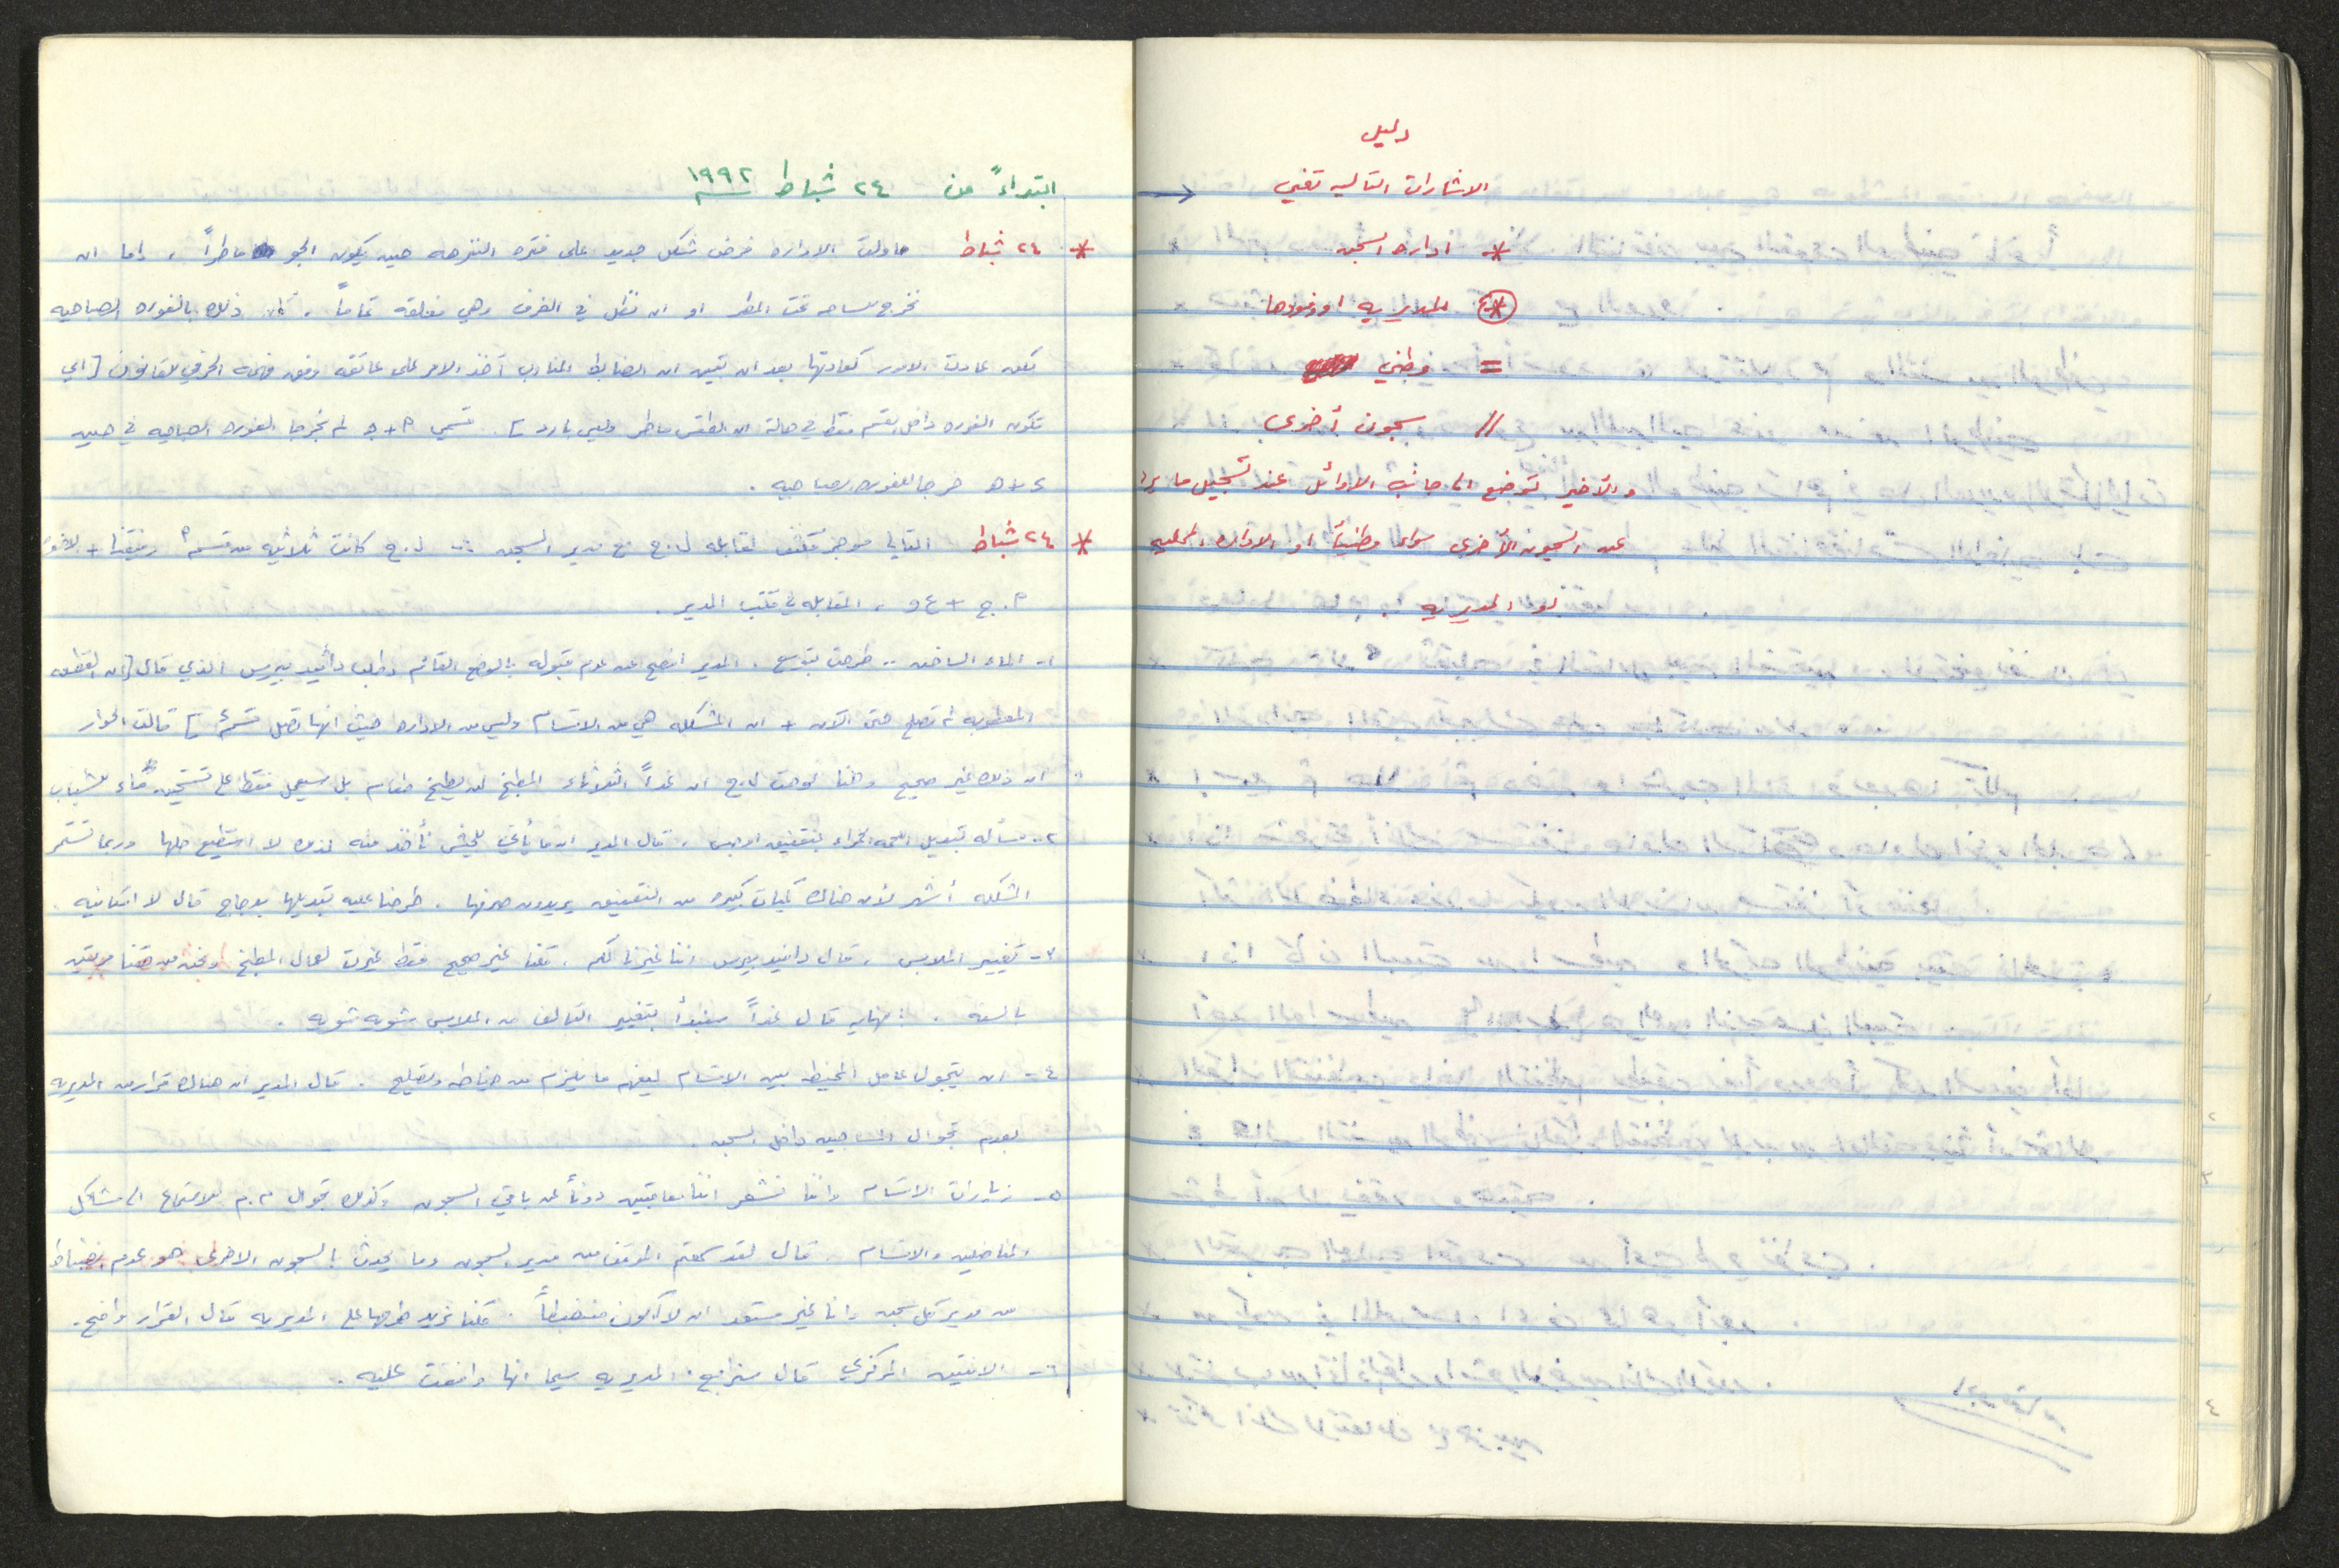 دليل
الاشارات التاليه تعني
* اداره السجن
* المديريه او وفودها
= وطني
// سجون أخرى
والأخير توضع الى جانب الاوائل عند تسجيل ما يرد
عن السجون الأخرى سواء وطنياً او الاداره المحليه
او المديريه .
ابتداءً من ٢٤ شباط ١٩٩٢
* ٢٤ شباط حاولت الاداره فرض شكل جديد على فتره النزهه حين يكون الجو ماطراً ، إما ان
نخرج للساحه تحت المطر او ان نظل في الغرف وهي مغلقه تماماً ، كان ذلك بالفوره الصباحيه
لكن عادت الامور كعادتها بعد ان تبين ان الضابط المناوب أخذ الامر على عاتقه وفق فهمه الحرفي للقانون [ اي
تكون الفوره داخل القسم فقط في حالة ان الطقس ماطر وليس بارد ] . قسمي لم يخرجا للفوره الصباحيه في حين
خرجا للفوره الصباحيه .
* ٢٤ شباط التالي موجز مكثف لمقابله ل.ج مع مدير السجن ل.ج كانت ثلاثيه من قسم
المقابله في مكتب المدير .
١- الماء الساخن .. طرحت بتوسع . المدير افصح عن عدم قبوله بالوضع القائم وطلب دافيد بيرس الذي قال [ ان القطعه
المطلوبه لم تصلح حتى الآن + ان المشكله هي من الاقسام وليس من الاداره حيث انها تصل ] قالت الحوار
ان ذلك غير صحيح وهنا ان غداً الثلاثاء المطبخ لن يطبخ طعام بل سيعمل فقط على تسخين ماء للشباب
٢- مسأله تبديل اللحمه الحمراء ، قال المدير ان ما يأتي للجيش نأخذ منه لذلك لا استطيع حلها وربما تستمر
المشكله أشهر لأن هناك كميات كبيره من يريدون صرفها . طرحنا عليه تبديلها بدجاج قال لا امكانيه .
٣- تغيير الملابس ، قال دافيد بيرس اننا غيرنا لكم ، قلنا غير صحيح فقط غيرت لعمال المطبخ ونحن من حقنا مرتين
بالسنه . قال غداً سنبدأ بتغيير التالف من الملابس شويه شويه .
٤- ان يتجول عامل المخيطه بين الاقسام ما يلزم من خياطه وتصليح . قال المدير ان هناك قرار من المديريه
بعدم تجوال داخل السجن .
٥- زيارات الاقسام واننا نشعر اننا معاقبين دوناً عن باقي السجون وكذلك تجوال م.م للاستماع الى مشاكل
المناضلين والاقسام . قال لقد سمعتم الموقف من مدير السجون وما يحدث بالسجون الاخرى هو عدم انضباط
من مدير كل سجن وانا غير مستعد ان لا اكون منضبطاً . قلنا نريد طرحها على المديريه قال القرار واضح .
٦- المركزي قال سنراجع المديريه سيما انها وافقت عليه .